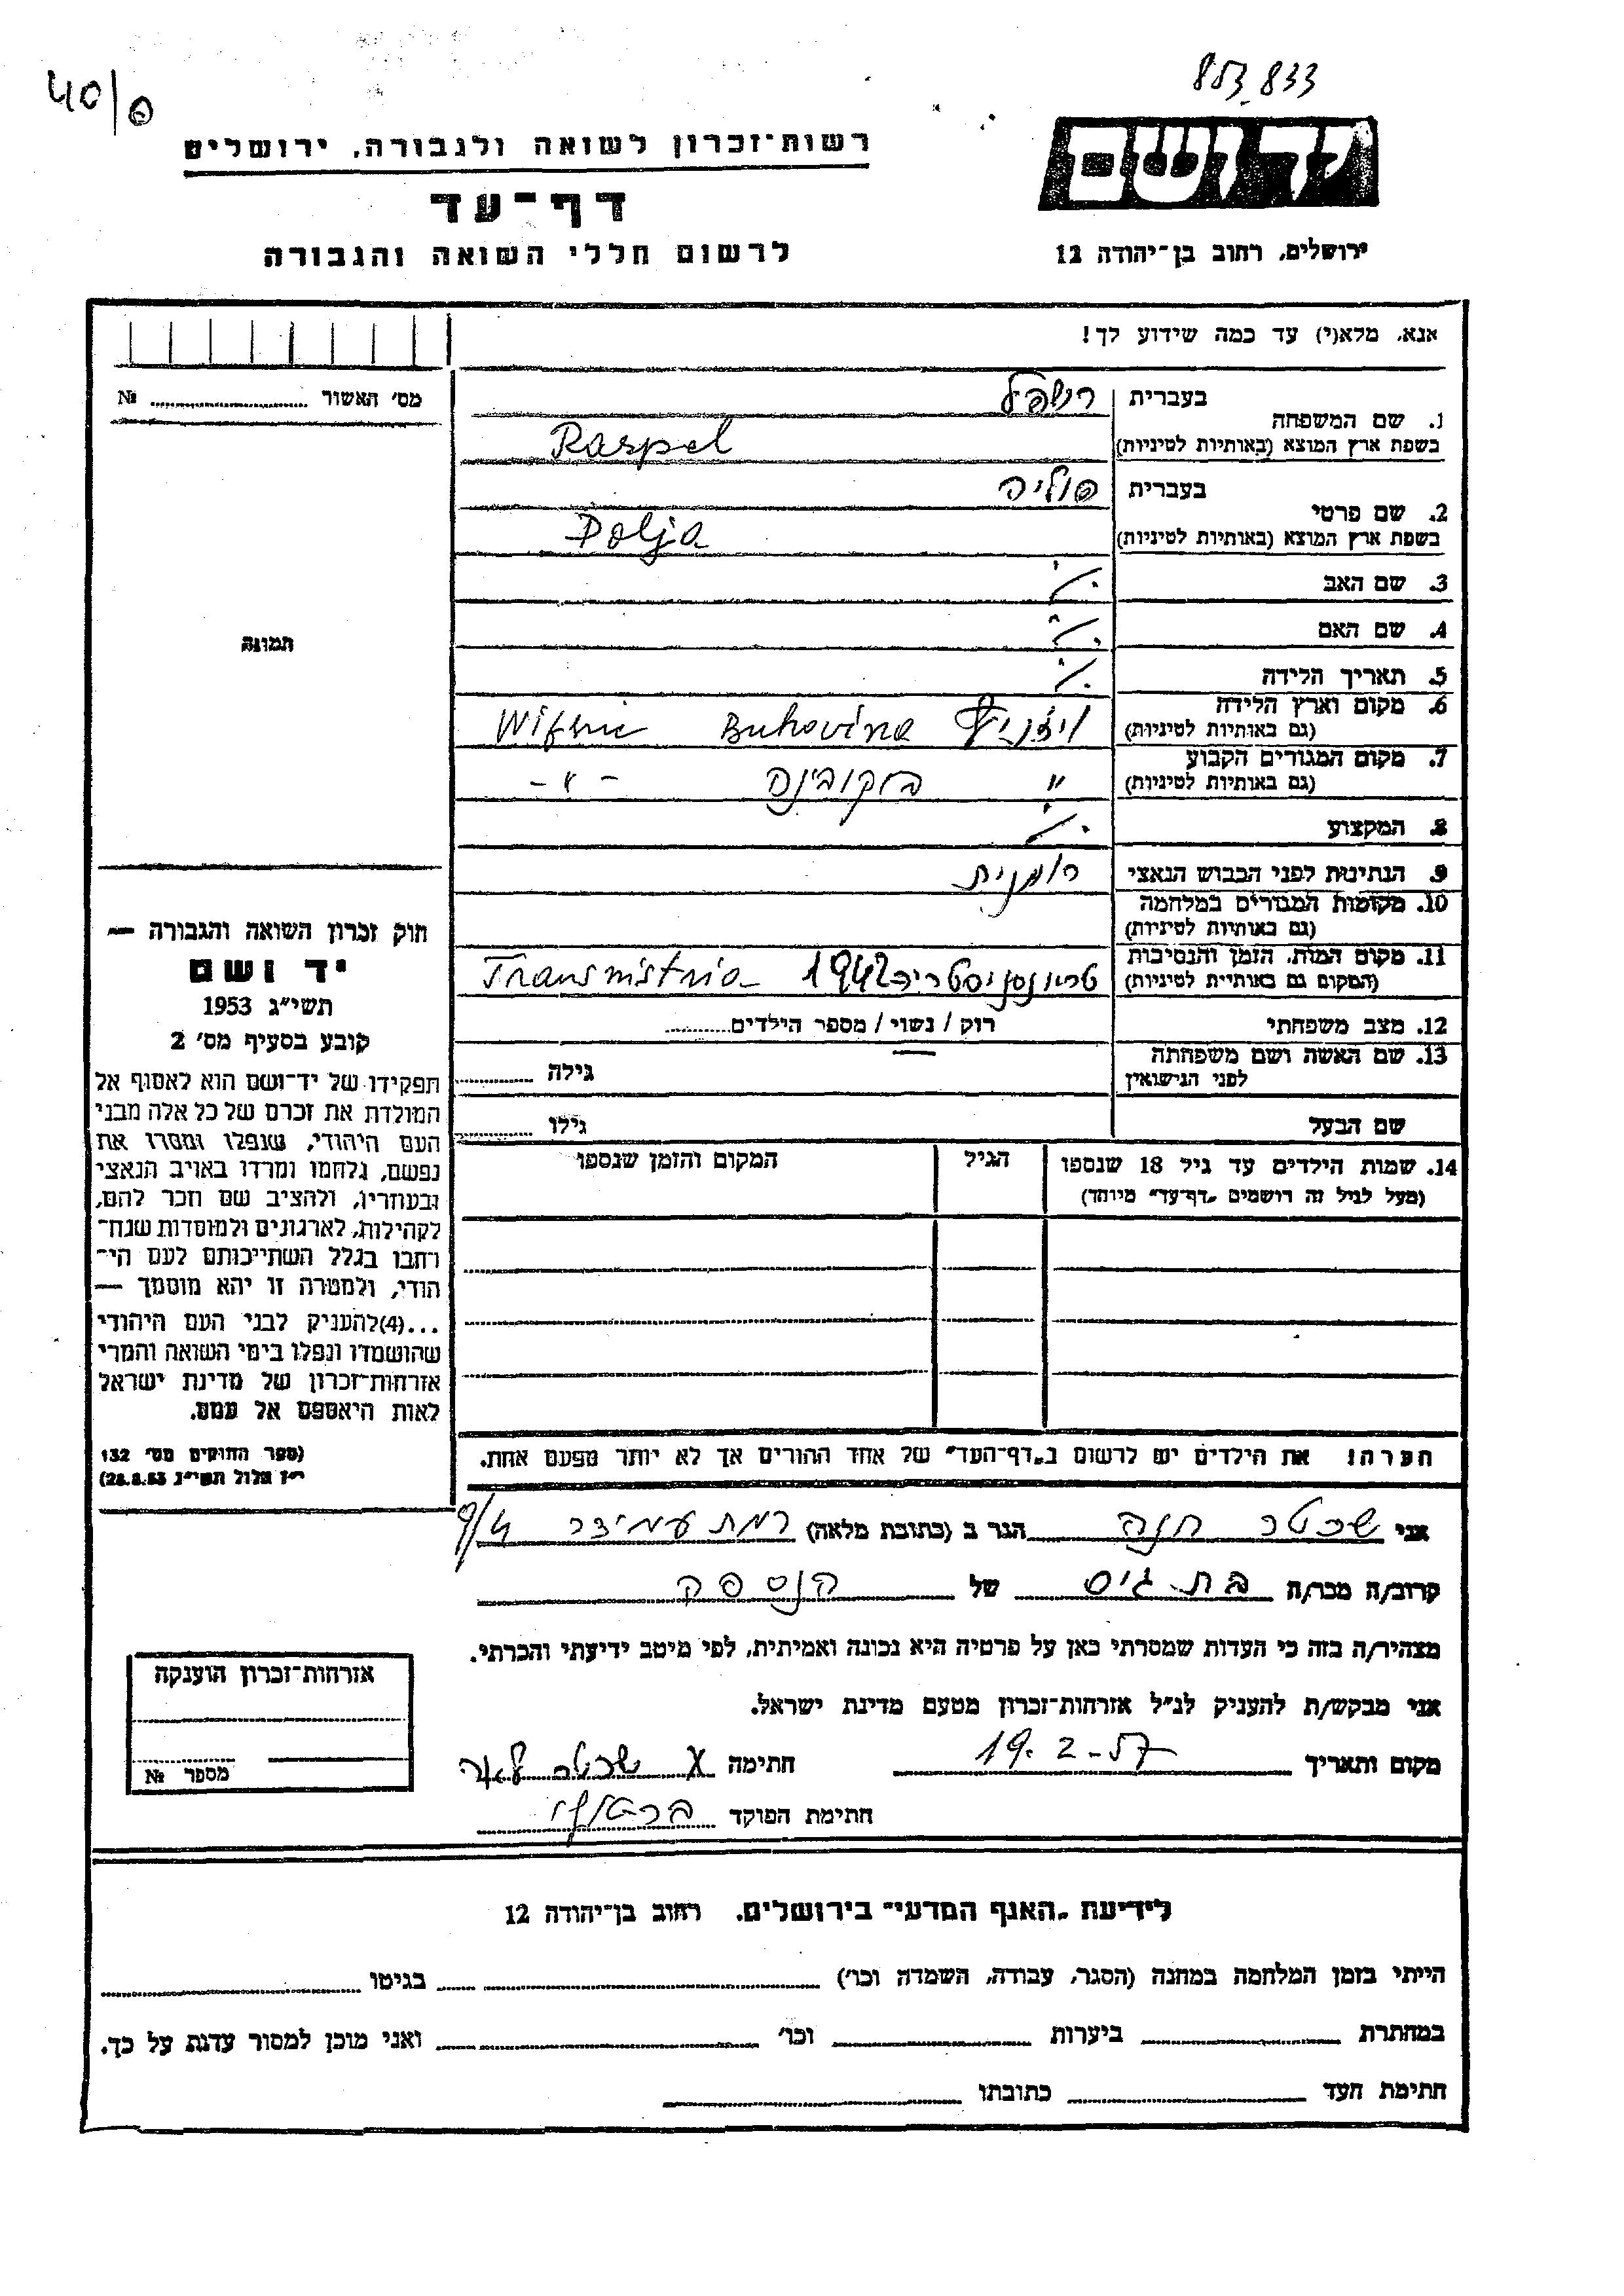 853.833
40/0
יד ושם
רשות־זכרון לשואה ולגבורה, ירושלים
דף־עד
לרשום חללי השואה והגבורה
ירושלים, רחוב בן־יהודה 12
אנא, מלא(י) עד כמה שידוע לך!
מס׳ האשור №
תמונה
1. שם המשפחה
בעברית רשפל
בשפת ארץ המוצא (באותיות לטיניות) Raspel
2. שם פרטי
בעברית פוליה
בשפת ארץ המוצא (באותיות לטיניות) Polja
3. שם האב
4. שם האם
5. תאריך הלידה
6. מקום וארץ הלידה
(גם באותיות לטיניות) Bukovina
7. מקום המגורים הקבוע
(גם באותיות לטיניות) " בוקובינה -"-
8. המקצוע
9. הנתינות לפני הכבוש הנאצי רומנית
10. מקומות המגורים במלחמה
(גם באותיות לטיניות)
11. מקום המות, הזמן והנסיבות
(המקום גם באותיות לטיניות) 1942 Transnistria
12. מצב משפחתי רוק / נשוי / מספר הילדים
13. שם האשה ושם משפחתה
לפני הנישואין גילה
שם הבעל גילו
14. שמות הילדים עד גיל 18 שנספו
(מעל לגיל זה רושמים „דף־עד” מיוחד)
הגיל
המקום והזמן שנספו
הערה: את הילדים יש לרשום ב„דף־העד” של אחד ההורים אך לא יותר מפעם אחת.
חוק זכרון השואה והגבורה —
יד ושם
תשי״ג 1953
קובע בסעיף מס׳ 2
תפקידו של יד־ושם הוא לאסוף אל
המולדת את זכרם של כל אלה מבני
העם היהודי, שנפלו ומסרו את
נפשם, נלחמו ומרדו באויב הנאצי
ובעוזריו, ולהציב שם וזכר להם,
לקהילות, לארגונים ולמוסדות שנח־
רבו בגלל השתייכותם לעם הי־
הודי, ולמטרה זו יהא מוסמך —
...(4)להעניק לבני העם היהודי
שהושמדו ונפלו בימי השואה והמרי
אזרחות־זכרון של מדינת ישראל
לאות היאספם אל עמם.
(ספר החוקים מס׳ 132
י״ז אלול תשי״ג 28.8.53)
אני שכטר חנה הגר ב (כתובת מלאה) רמת עמידר 9/4
קרוב/ה מכר/ה בת גיס של הנספה
מצהיר/ה בזה כי העדות שמסרתי כאן על פרטיה היא נכונה ואמיתית, לפי מיטב ידיעתי והכרתי.
אני מבקש/ת להעניק לנ״ל אזרחות־זכרון מטעם מדינת ישראל.
מקום ותאריך 19.2-57 חתימה
חתימת הפוקד
אזרחות־זכרון הוענקה
מספר №
לידיעת „האגף המדעי” בירושלים, רחוב בן־יהודה 12
הייתי בזמן המלחמה במחנה (הסגר, עבודה, השמדה וכו׳) בגיטו
במחתרת ביערות וכו׳ ואני מוכן למסור עדות על כך.
חתימת העד כתובתו